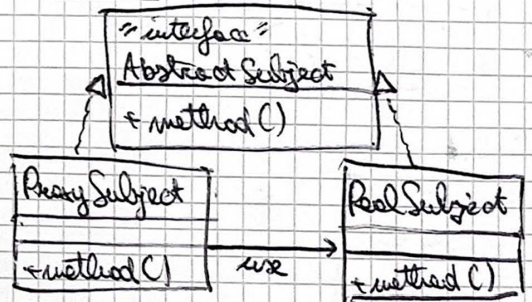 "interface"
AbstractSubject
+ method()
ProxySubject
+method()
use
RealSubject
+method()